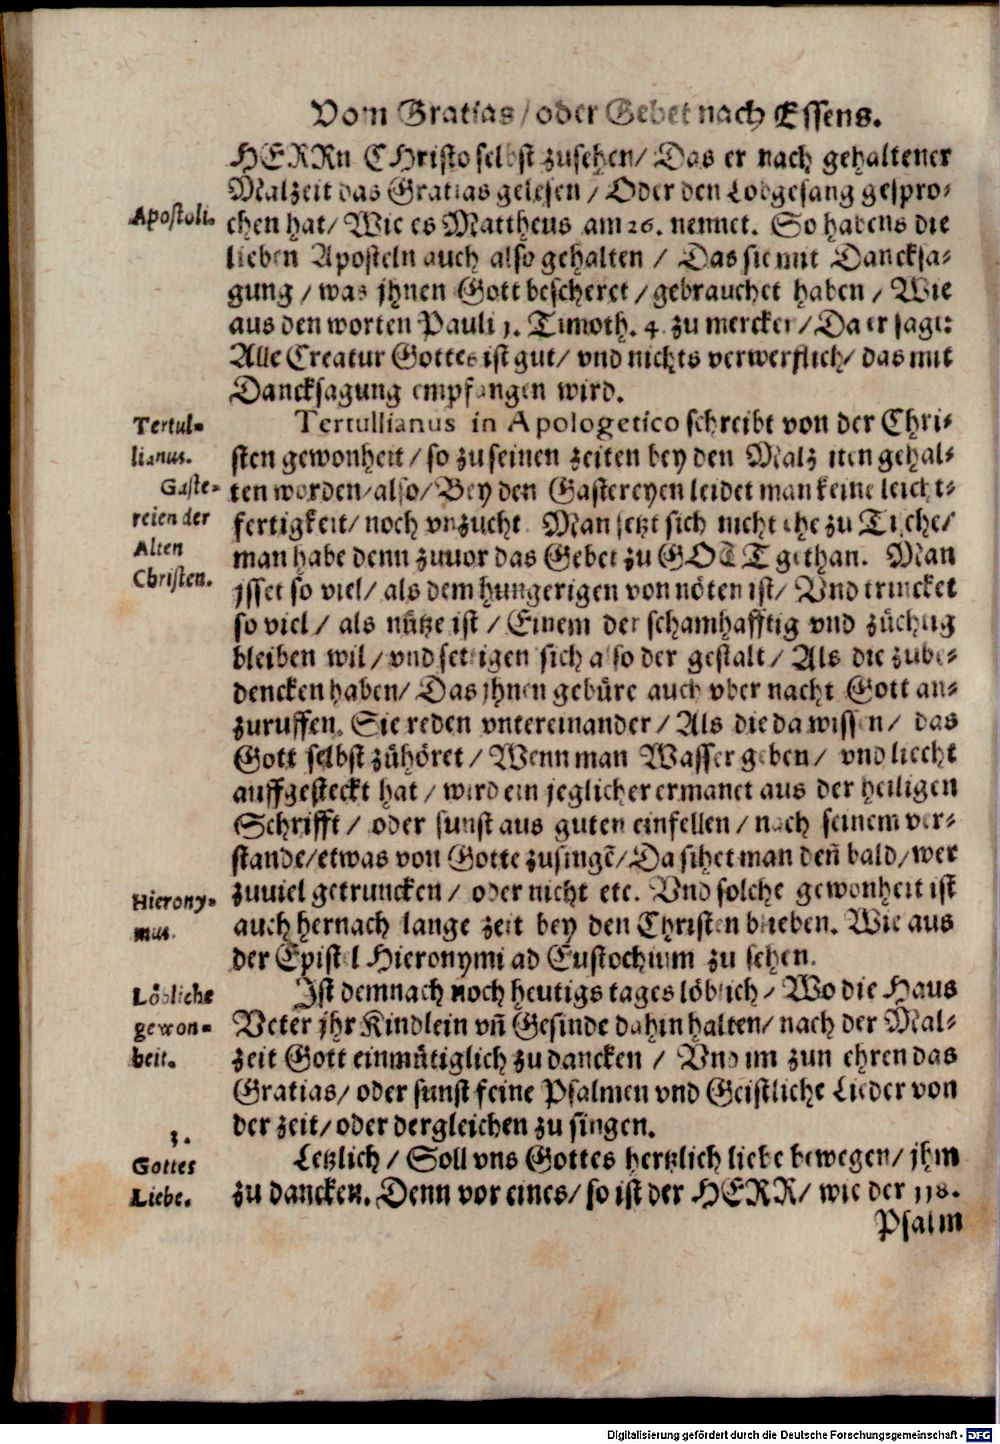 Vom Gratias / oder Gebet nach Essens.
HERRn CHristo selbst zusehen / Das er nach gehaltener
Malzeit das Gratias gelesen / Oder den Lobgesang gespro-
Apostoli.
chen hat / Wie es Mattheus am 26. nennet. So habens die
lieben Aposteln auch also gehalten / Das sie mit Dancksa-
gung / was jhnen Gott bescheret / gebrauchet haben / Wie
aus den worten Pauli 1. Timoth. 4. zu mercken / Da er saget:
Alle Creatur Gottes ist gut / vnd nichts verwerflich / das mit
Dancksagung empfangen wird.
Tertul-
lianus.
Tertullianus in Apologetico schreibt von der Chri-
sten gewonheit / so zu seinen zeiten bey den Malzeiten gehal-
Gaste-
reien der
Alten
Christen.
ten worden / also / Bey den Gastereyen leidet man keine leicht-
fertigkeit / noch vnzucht. Man setzt sich nicht ehe zu Tische /
man habe denn zuuor das Gebet zu GOTT gethan. Man
jsset so viel / als dem hungerigen von nöten ist / Vnd trincket
so viel / als nütze ist / Einem der schamhafftig vnd züchtig
bleiben wil / vnd settigen sich also der gestalt / Als die zube-
dencken haben / Das jhnen gebüre auch vber nacht Gott an-
zuruffen. Sie reden vntereinander / Als die da wissen / das
Gott selbst zühöret / Wenn man Wasser geben / vnd liecht
auffgesteckt hat / wird ein jeglicher ermanet aus der heiligen
Schrifft / oder sunst aus guten einfellen / nach seinem ver-
stande / etwas von Gotte zusingē / Da sihet man deñ bald / wer
Hierony-
mus.
zuuiel getruncken / oder nicht etc. Vnd solche gewonheit ist
auch hernach lange zeit bey den Christen blieben. Wie aus
der Epistel Hieronymi ad Eustochium zu sehen.
Löbliche
gewon-
heit.
Ist demnach noch heutigs tages löblich / Wo die Haus
Veter jhr Kindlein vñ Gesinde dahin halten / nach der Mal-
zeit Gott einmütiglich zu dancken / Vnd im zun ehren das
Gratias / oder sunst feine Psalmen vnd Geistliche Lieder von
der zeit / oder dergleichen zu singen.
3.
Gottes
Liebe.
Letzlich / Soll vns Gottes hertzlich liebe bewegen / jhm
zu dancken. Denn vor eines / so ist der HERR / wie der 118.
Psalm
Digitalisierung gefördert durch die Deutsche Forschungsgemeinschaft - DFG